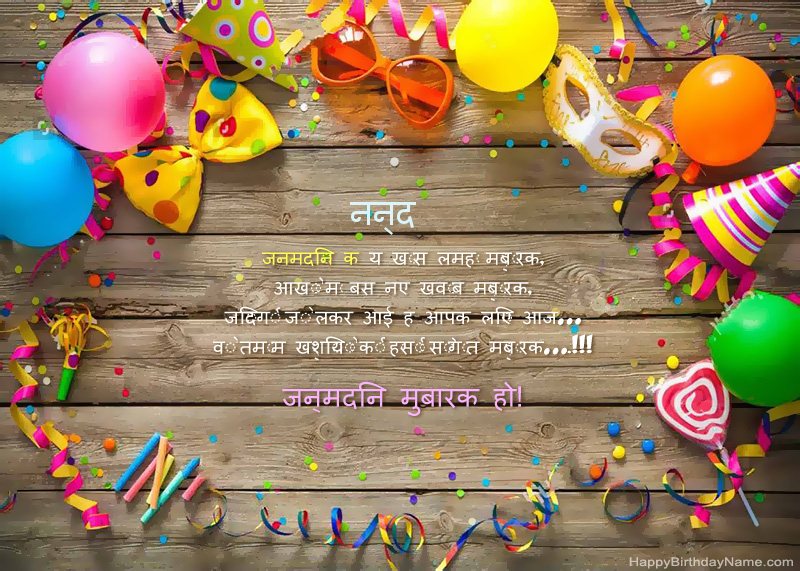 नन्द
जन्मदिन के ये खास लम्हें मुबारक,
आँखों में बसे नए ख्वाब मुबारक,
जिंदगी जो लेकर आई है आपके लिए आज...
वो तमाम खुशियों की हंसीं सौगात मुबारक...!!!
जन्मदिन मुबारक हो!
HappyBirthdayName.com